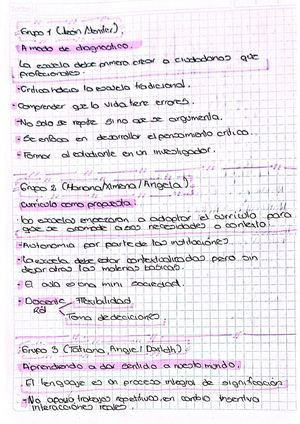 Grupo 1 (León / Yenifer).
A modo de diagnostico.
La escuela debe primero crear a ciudadanos que
profesionales.
- Critica hacia la escuela tradicional.
- Comprender que la vida tiene errores.
- No solo se repite sino que se argumenta.
- Se enfoca en desarrollar el pensamiento critico.
- Formar al estudiante en un investigador.
Grupo 2 (Mariana/Ximena / Angela)
Curriculo como propuesta
- Las escuelas empezaran a adoptar el curriculo para
que se acomode a sus necesidades o contexto.
- Autonomia por parte de las instituciones.
- La escuela debe estar contextualizadas pero sin
dejar atras las materias basicas.
- El aula es una mini sociedad.
- Docente Flexibilidad
Rol Toma de deciciones.
Grupo 3 (Tatiana, Angie /
Aprendiendo a dar sentido a nuestro mundo.
El lenguaje es un proceso integral de significación
- No apoya trabajos repetitivos, en cambio insentiva
interacciones reales.